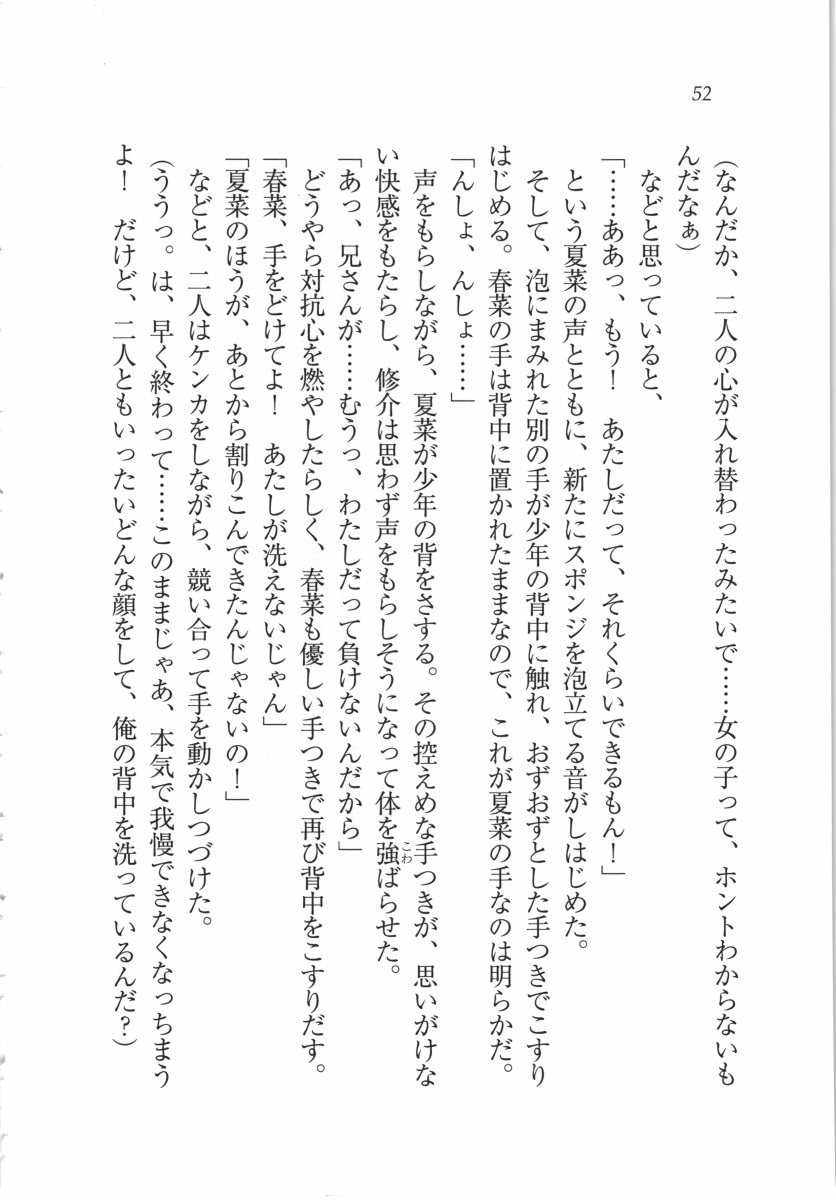 52
(なんだか、二人の心が入れ替わったみたいで……女の子って、ホントわからないも
んだなぁ)
などと思っていると、
「……ああっ、もう！　あたしだって、それくらいできるもん！」
という夏菜の声とともに、新たにスポンジを泡立てる音がしはじめた。
そして、泡にまみれた別の手が少年の背中に触れ、おずおずとした手つきでこすり
はじめる。春菜の手は背中に置かれたままなので、これが夏菜の手なのは明らかだ。
「んしょ、んしょ……」
声をもらしながら、夏菜が少年の背をさする。その控えめな手つきが、思いがけな
い快感をもたらし、修介は思わず声をもらしそうになって体を強こわばらせた。
「あっ、兄さんが……むうっ、わたしだって負けないんだから」
どうやら対抗心を燃やしたらしく、春菜も優しい手つきで再び背中をこすりだす。
「春菜、手をどけてよ！　あたしが洗えないじゃん」
「夏菜のほうが、あとから割りこんできたんじゃないの！」
などと、二人はケンカをしながら、競い合って手を動かしつづけた。
(ううっ。は、早く終わって……このままじゃあ、本気で我慢できなくなっちまう
よ！　だけど、二人ともいったいどんな顔をして、俺の背中を洗っているんだ？)